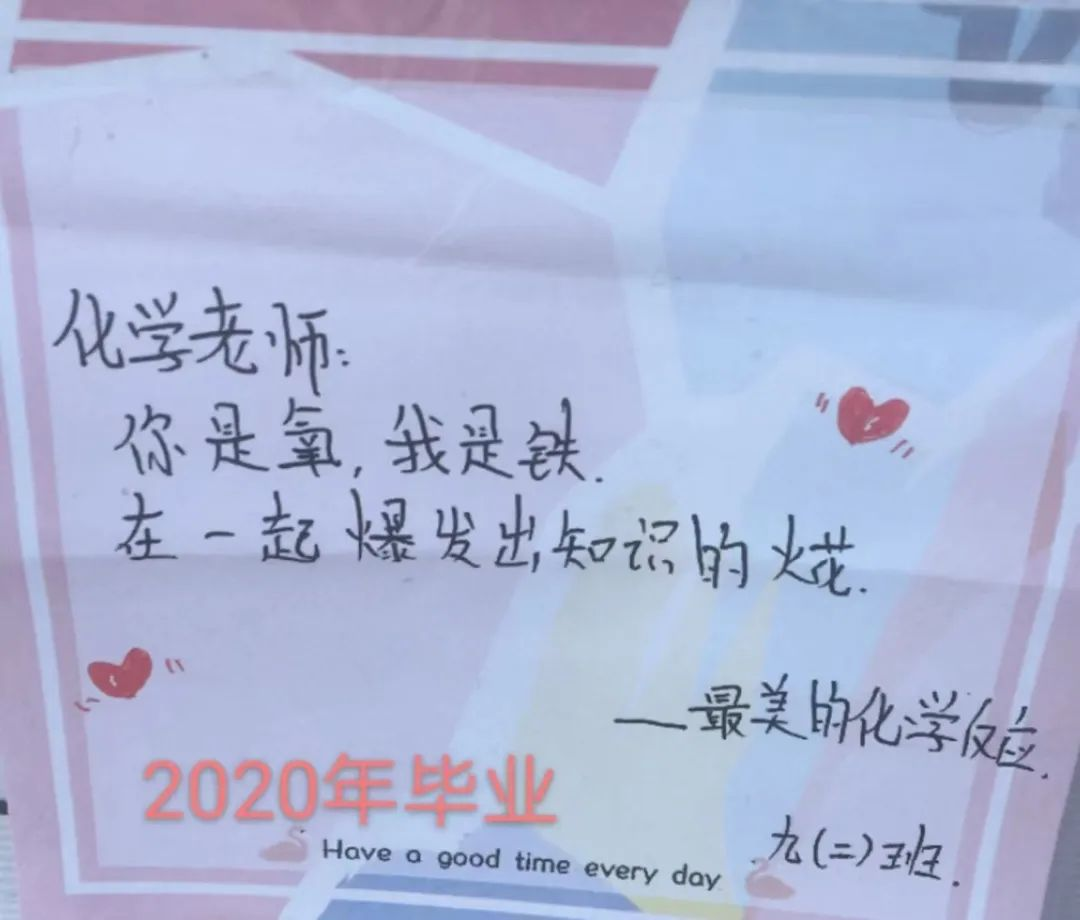 化学老师:
你是氧,我是铁.
在一起爆发出知识的火花.
——最美的化学反应.
2020年毕业
九(二)班.
Have a good time every day